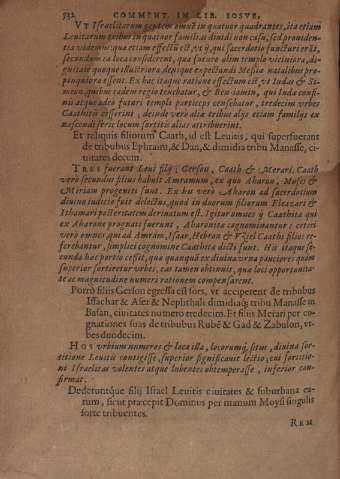 532 COMMENT. IN LIB. IOSVE,
VT Israelitarum gentem omnē in quatuor quadrantes, ita etiam
Leuitarum tribus in quatuor familias diuidi non casu, sed prouiden-
tia videmus: qua etiam effectū est, vt ij, qui sacerdotio functuri erāt,
secundùm ea loca considerent, quæ futuro olim templo viciniora, di-
gnitate quoque illustriora, denique expectandi Messiæ natalibus pro-
pinquiora essent. Ex hac itaque ratione effectum est, vt Iudas & Si-
meon, quibus eadem regio tenebatur, & Beniamin, qui Iudæ confi-
nis atque adeò futuri templi particeps censebatur, tredecim vrbes
Caathitis offerrint, deinde verò aliæ tribus aliis etiam familiis ex
nascendi serie locum sortitis alias astribuerint.
Et reliquis filiorum Caath, id est Leuitis, qui superfuerant
de tribubus Ephraim, & Dan, & dimidia tribu Manasse, ci-
uitates decem.
TRES fuerunt Leui filij, Gerson, Caath & Merari. Caath
verò secundus filius habuit Amramum, ex quo Aharon, Moses &
Miriam progeniti sunt. Ex his verò Aharon ad sacerdotium
diuino iudicio fuit delectus, quod in duorum filiorum Eleazari &
Ithamari posteritatem deriuatum est. Igitur omnes ij Caathitæ qui
ex Aharone prognati fuerunt, Aharonitæ cognominantur: ceteri
verò omnes, qui ad Amram, Isaar, Hebron & Vziel Caathi filios re-
ferebantur, simplici cognomine Caathitæ dicti sunt. His itaque se-
cunda hæc portio cessit, quæ quanquā ex diuina vrna pauciores quàm
superior sortiretur vrbes, eas tamen obtinuit, quæ loci opportunita-
te ac magnitudine numeri rationem compensarent.
Porrò filiis Gerson egressa est sors, vt acciperent de tribubus
Issachar & Aser & Nephthali dimidiaq; tribu Manasse in
Basan, ciuitates numero tredecim. Et filiis Merari per co-
gnationes suas de tribubus Rubē & Gad & Zabulon, vr-
bes duodecim.
HOS vrbium numeros & loca illa, locorumq́; situs, diuina sor-
titione Leuitis contigisse, superior significauit lectio, cui sortitio-
ni Israelitas volentes atque lubentes obtemperasse, inferior con-
firmat.
Dederuntq́ue filij Israel Leuitis ciuitates & suburbana ea-
rum, sicut præcepit Dominus per manum Moysi singulis
sorte tribuentes.
REM